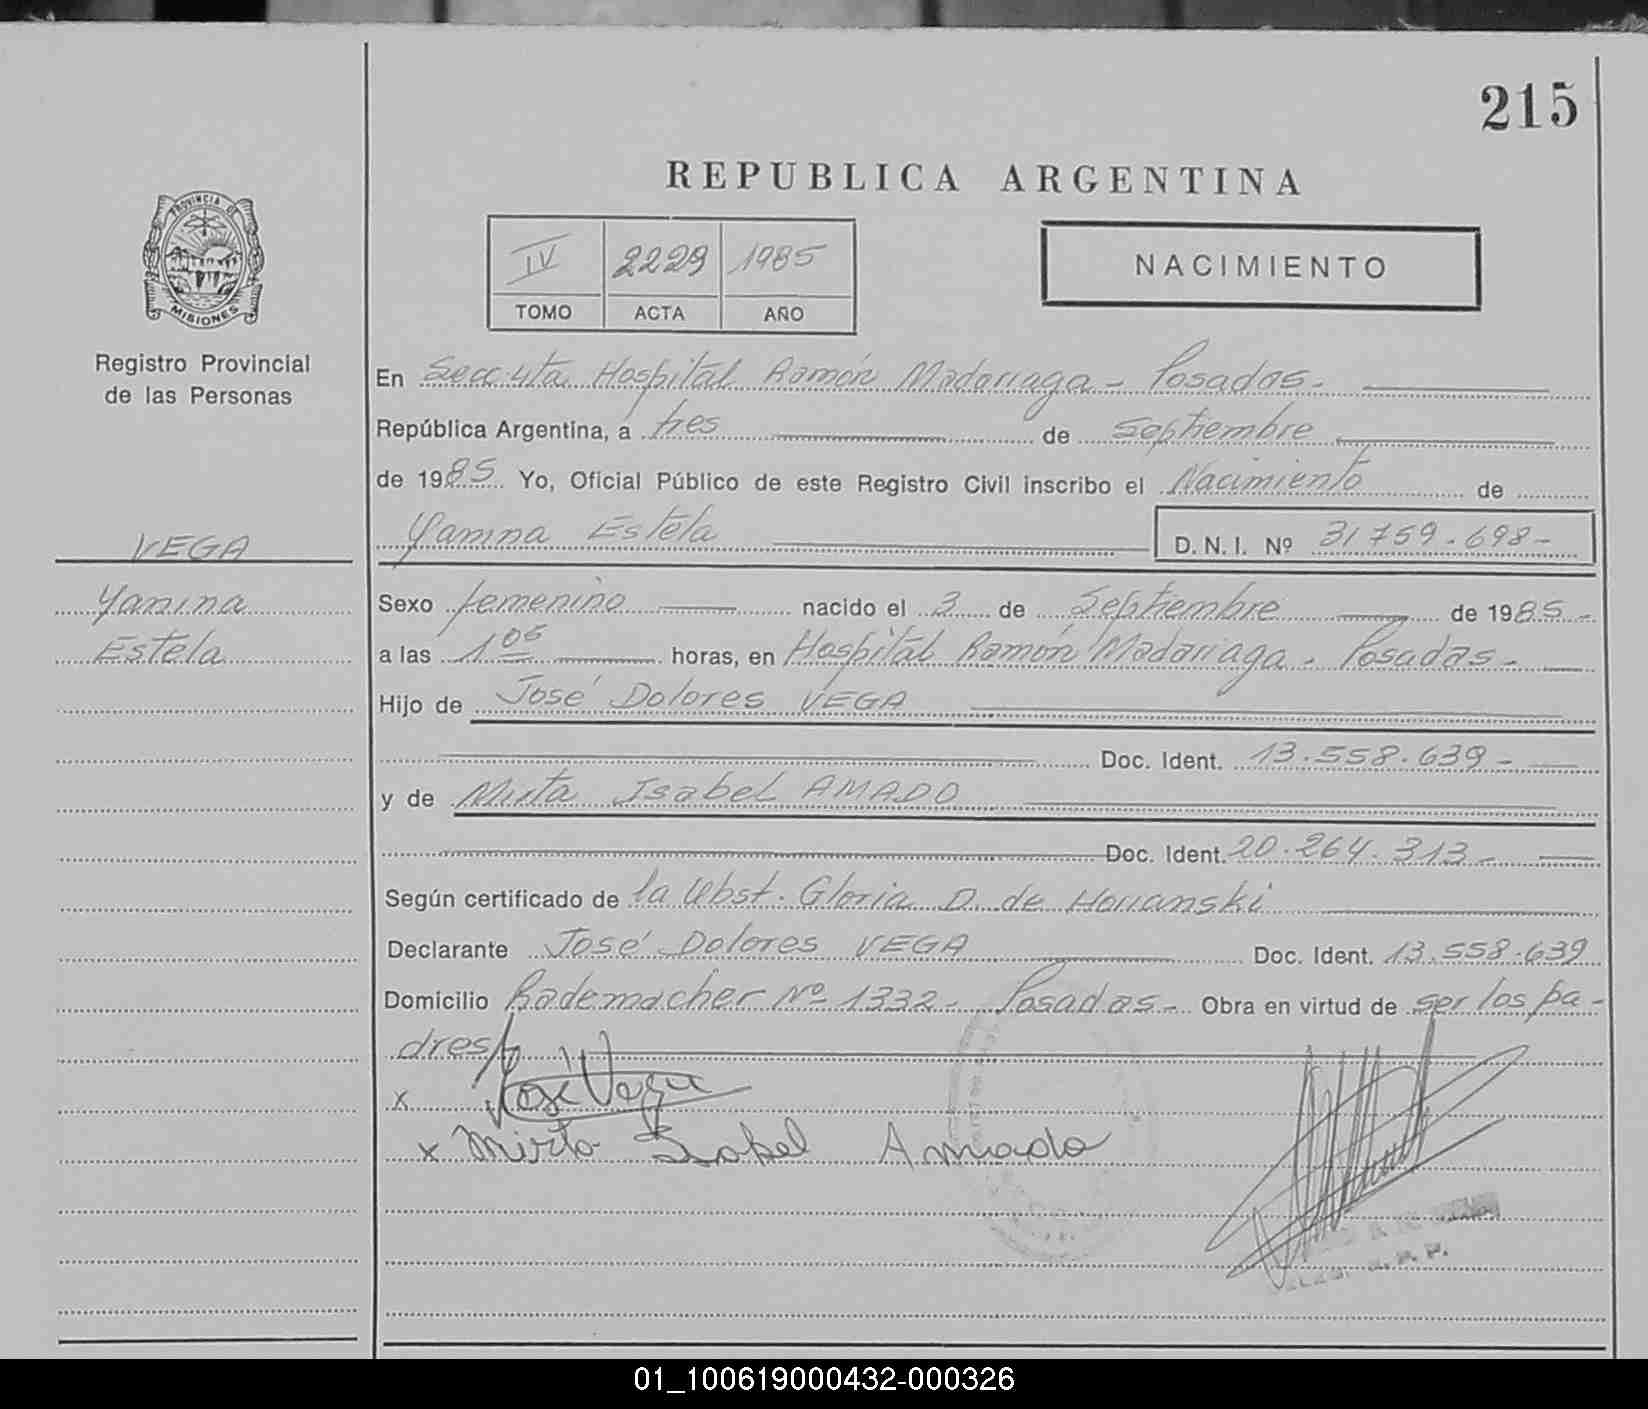 215
REPUBLICA ARGENTINA
IV 2229 1985
TOMO ACTA AÑO
NACIMIENTO
PROVINCIA DE
MISIONES
Registro Provincial
de las Personas
VEGA
Yanina
Estela
En Secc 4ta Hospital Ramón Madariaga - Posadas -
República Argentina, a tres de Septiembre
de 1985. Yo, Oficial Público de este Registro Civil inscribo el Nacimiento de
Yanina Estela D. N. I. Nº 31759.698-
Sexo femenino nacido el 3 de Septiembre de 1985-
a las 1 05 horas, en Hospital Ramón Madariaga - Posadas -
Hijo de José Dolores VEGA
Doc. Ident. 13.558.639-
y de Mirta Isabel AMADO
Doc. Ident. 20.264.313-
Según certificado de la Obst. Gloria D. de
Declarante José Dolores VEGA Doc. Ident. 13.558.639
Domicilio Rademacher Nº 1332- Posadas - Obra en virtud de ser los pa-
dres
x José Vega
x Mirta Isabel Amado
01_100619000432-000326